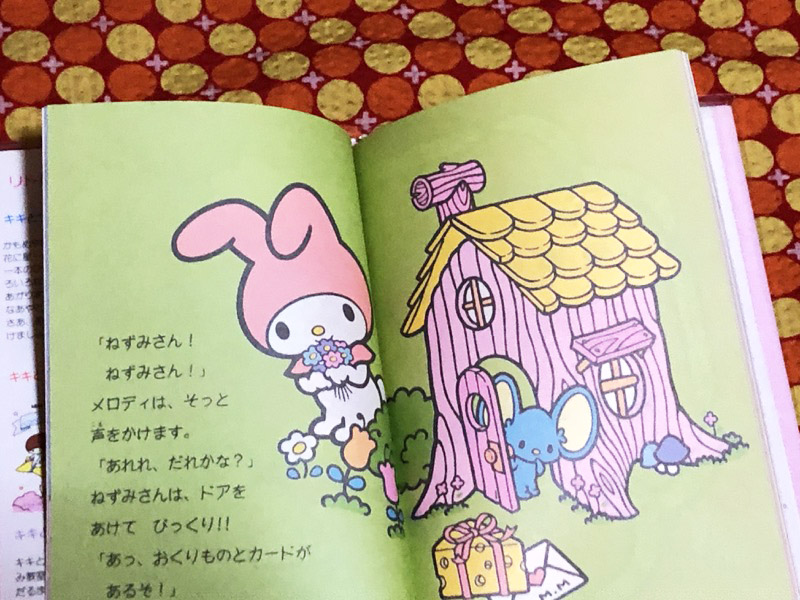 「ねずみさん！
ねずみさん！」
メロディは、そっと
声をかけます。
「あれれ、だれかな？」
ねずみさんは、ドアを
あけて びっくり!!
「あっ、おくりものとカードが
あるぞ！」
M.M